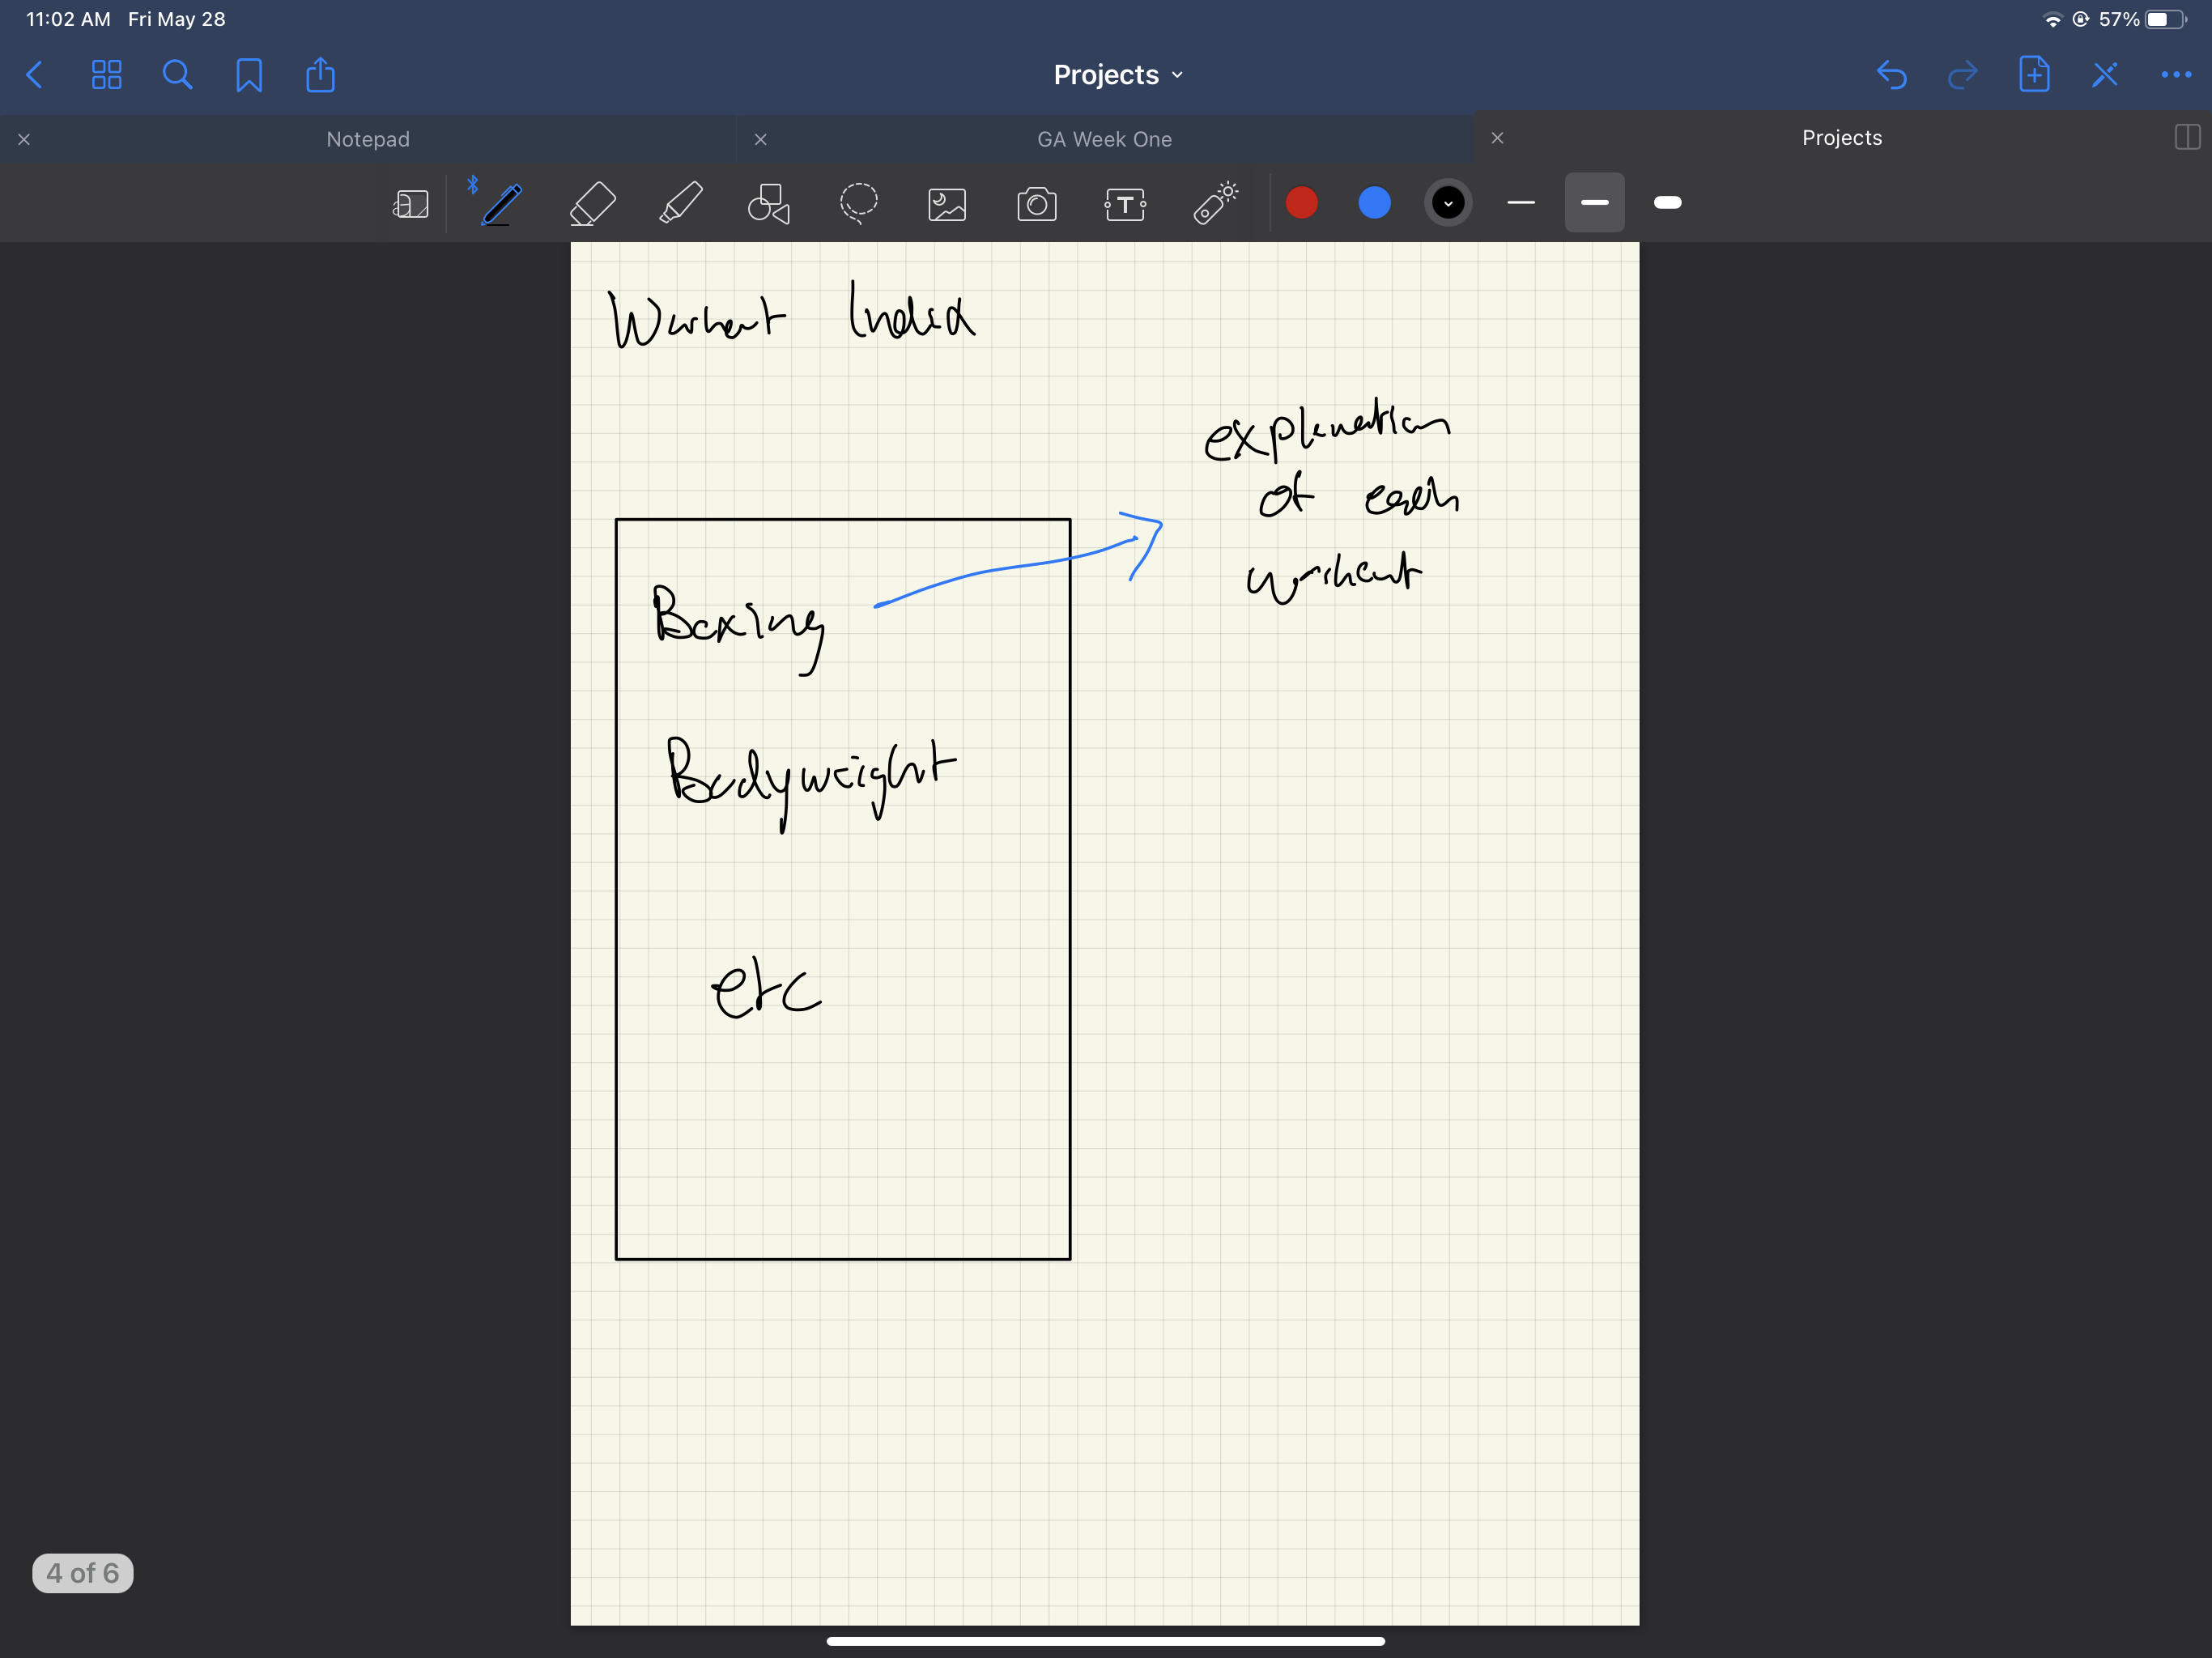 11:02 AM Fri May 28
57%
Projects
Notepad
GA Week One
Projects
T
Workout Index
explanation
of each
workout
Boxing
Bodyweight
etc
4 of 6